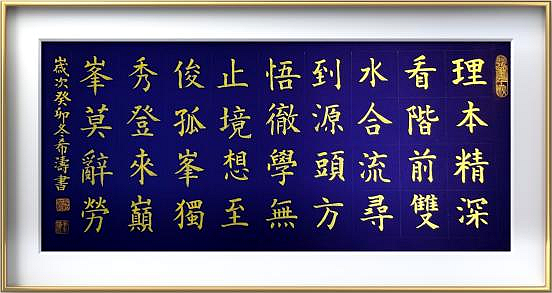 理本精深
看階前雙
水合流尋
到源頭方
悟徹學無
止境想至
俊孤峯獨
秀登來巔
峯莫辭勞
歲次癸卯冬希濤書